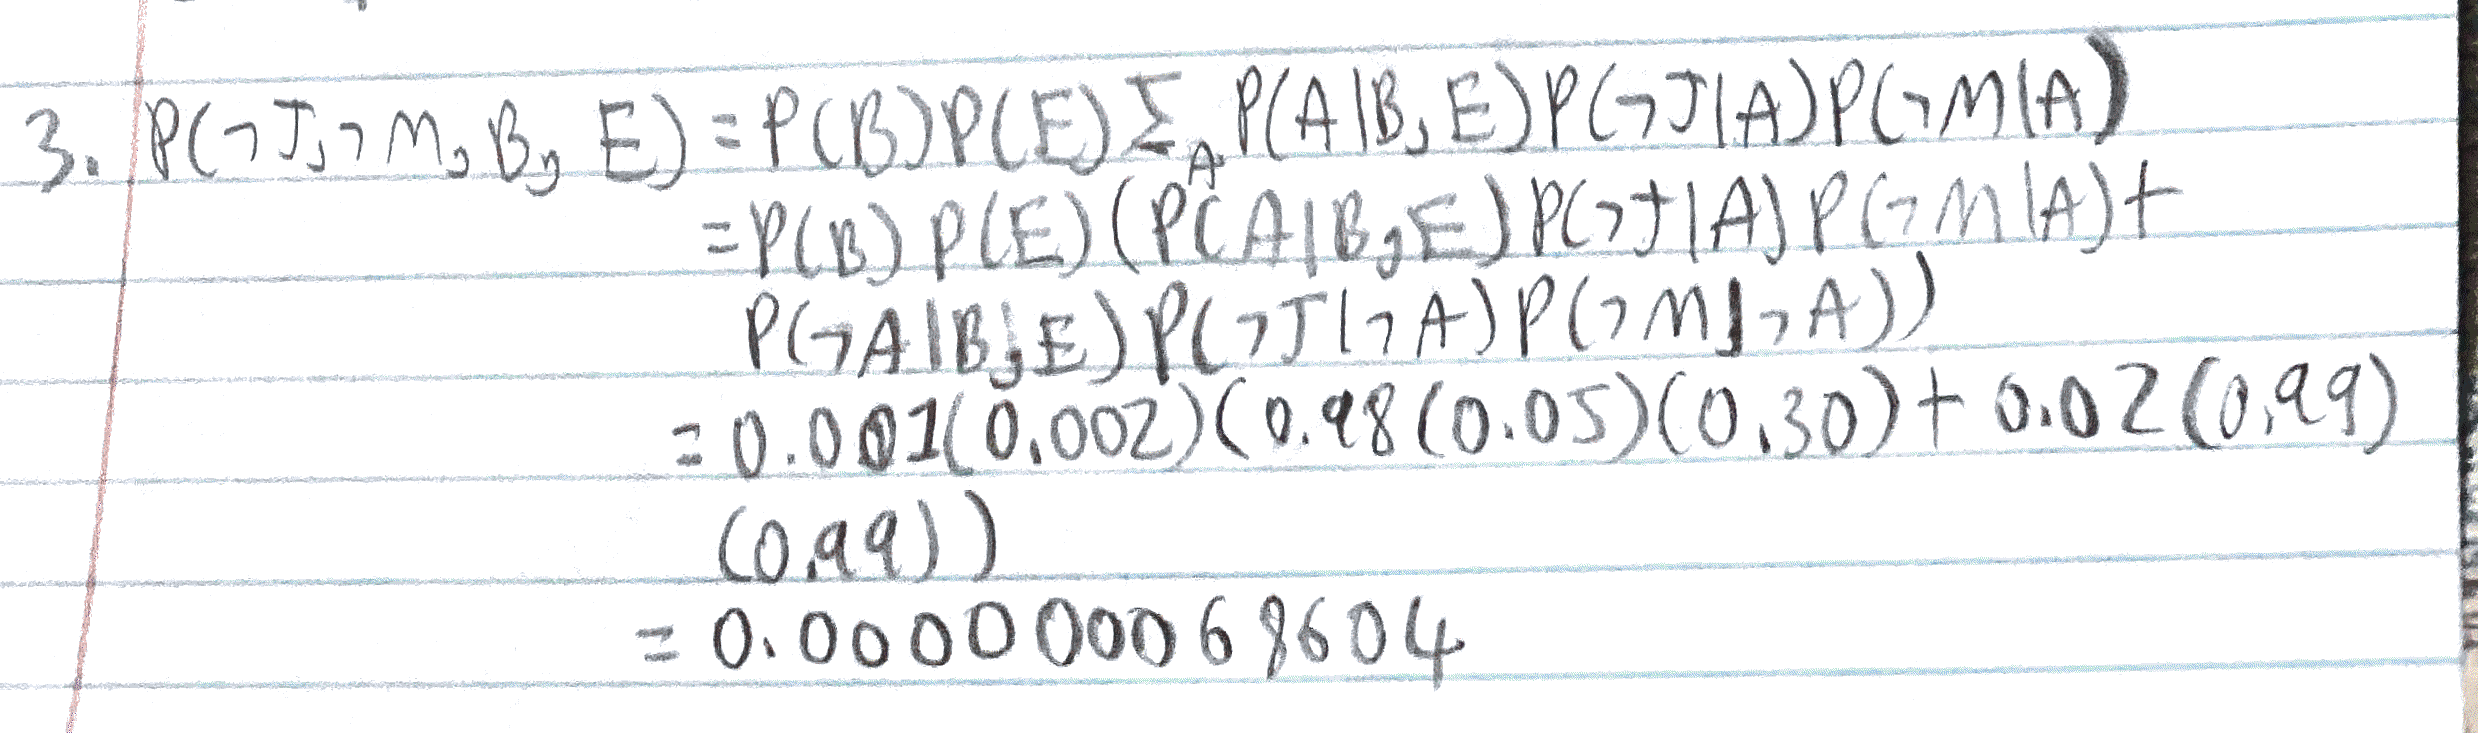 3. P(¬J,¬M,B,E)=P(B)P(E)Σ_A P(A|B,E)P(¬J|A)P(¬M|A)
=P(B)P(E)(P(A|B,E)P(¬J|A)P(¬M|A)+
P(¬A|B,E)P(¬J|¬A)P(¬M|¬A))
=0.001(0.002)(0.98(0.05)(0.30)+0.02(0.99)
(0.99))
=0.000000068604